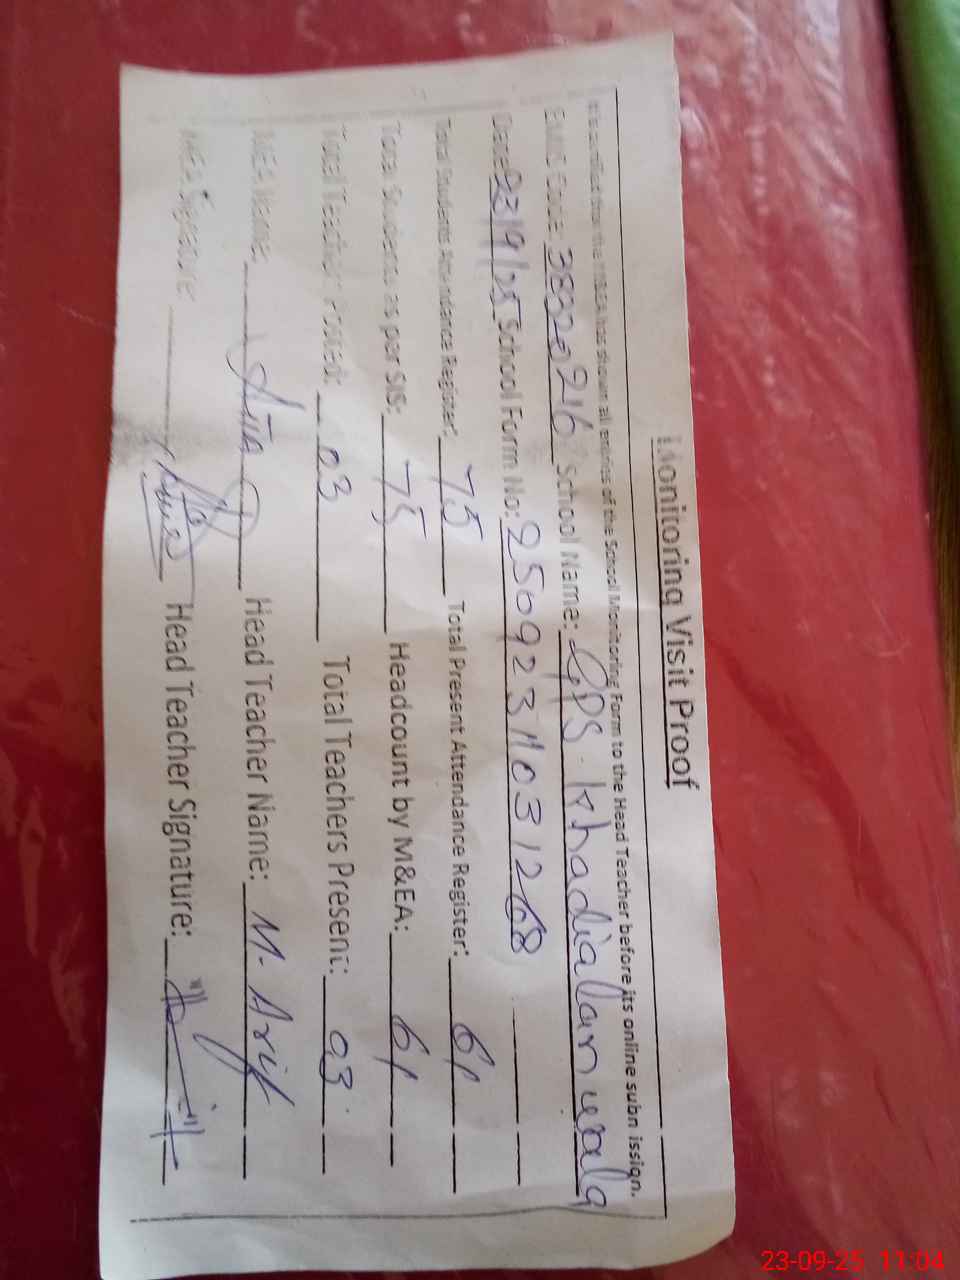 Monitoring Visit Proof
It is certified that the M&EA has shown all entries of the School Monitoring Form to the Head Teacher before its online submission.
EMIS Code: 38320216 School Name: GPS Khadialan wala
Date: 23/9/25 School Form No: 25092311031268
Total Students Attendance Register: 75 Total Present Attendance Register: 61
Total Students as per SIS: 75 Headcount by M&EA: 61
Total Teacher Posted: 03 Total Teachers Present: 03
M&EA Name: Head Teacher Name: M. Arif
M&EA Signature: Head Teacher Signature:
23-09-25 11:04